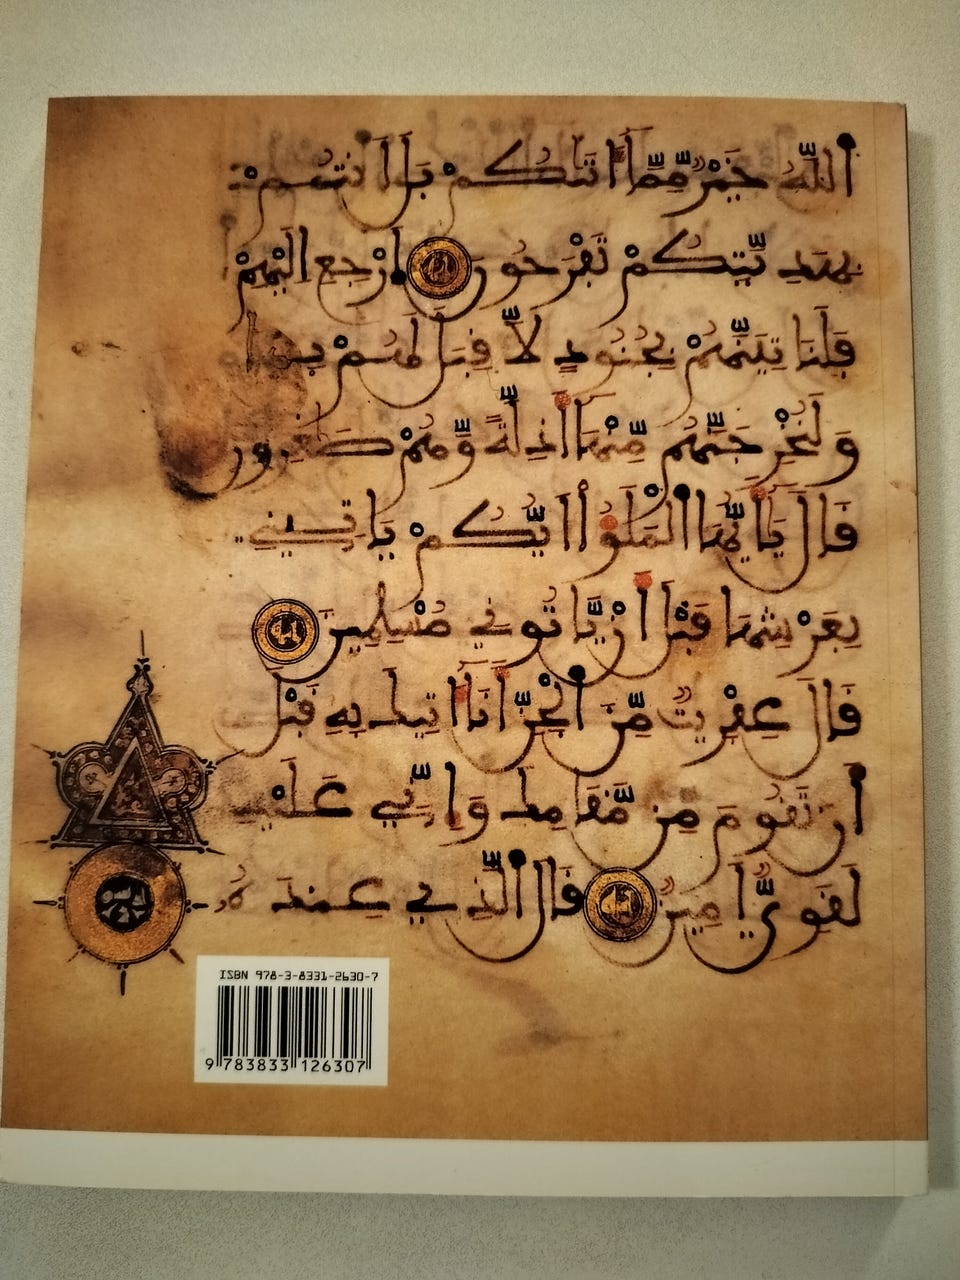 اللَّهُ خَيْرٌ مِّمَّا آتَاكُمْ بَلْ أَنتُمْ
بِهَدِيَّتِكُمْ تَفْرَحُونَ ارْجِعِ الَيْهِمْ
فَلَنَاتِيَنَّهُمْ بِجُنُودٍ لَّا قِبَلَ لَهُمْ بِهَا
وَلَنُخْرِجَنَّهُم مِّنْهَا أَذِلَّةً وَّهُمْ صَاغِرُونَ
قَالَ يَا أَيُّهَا الْمَلَؤُا أَيُّكُمْ يَاتِينِي
بِعَرْشِهَا قَبْلَ أَن يَّاتُونِي مُسْلِمِينَ
قَالَ عِفْرِيتٌ مِّنَ الْجِنِّ أَنَا آتِيكَ بِهِ قَبْلَ
أَن تَقُومَ مِن مَّقَامِكَ وَإِنِّي عَلَيْهِ
لَقَوِيٌّ أَمِينٌ قَالَ الَّذِي عِندَهُ
ISBN 978-3-8331-2630-7
9 783833 126307